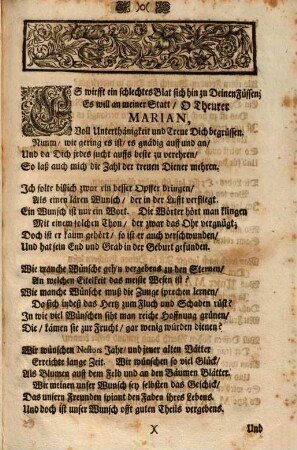 ES wirfft ein schlechtes Blat sich hin zu Deinen Füssen;
Es will an meiner Statt / O Theurer
MARIAN,
Voll Unterthänigkeit und Treue Dich begrüssen.
Nimm / wie gering es ist / es gnädig auff und an /
Und da Dich jedes sucht auffs beste zu verehren /
So laß auch mich die Zahl der treuen Diener mehren.
Ich solte billich zwar ein besser Opffer bringen /
Als einen lären Wunsch / der in der Lufft verfliegt.
Ein Wunsch ist nur ein Wort. Die Wörter hört man klingen
Mit einem solchen Thon / der zwar das Ohr vergnügt;
Doch ist er kaum gehört / so ist er auch verschwunden /
Und hat sein End und Grab in der Geburt gefunden.
Wie manche Wünsche geh'n vergebens zu den Sternen /
An welchen Eitelkeit das meiste Wesen ist?
Wie manche Wünsche muß die Zunge sprechen lernen /
Da sich indeß das Hertz zum Fluch und Schaden rüst?
In wie viel Wünschen siht man reiche Hoffnung grünen /
Die / kämen sie zur Frucht / gar wenig würden dienen?
Wir wünschen Nestors Jahr / und jener alten Vätter
Erreichte lange Zeit. Wir wünschen so viel Glück /
Als Blumen auff dem Feld und an den Bäumen Blätter.
Wir meinen unser Wunsch sey selbsten das Geschick /
Das unsern Freunden spinnt den Faden ihres Lebens.
Und doch ist unser Wunsch offt guten Theils vergebens.
X Und